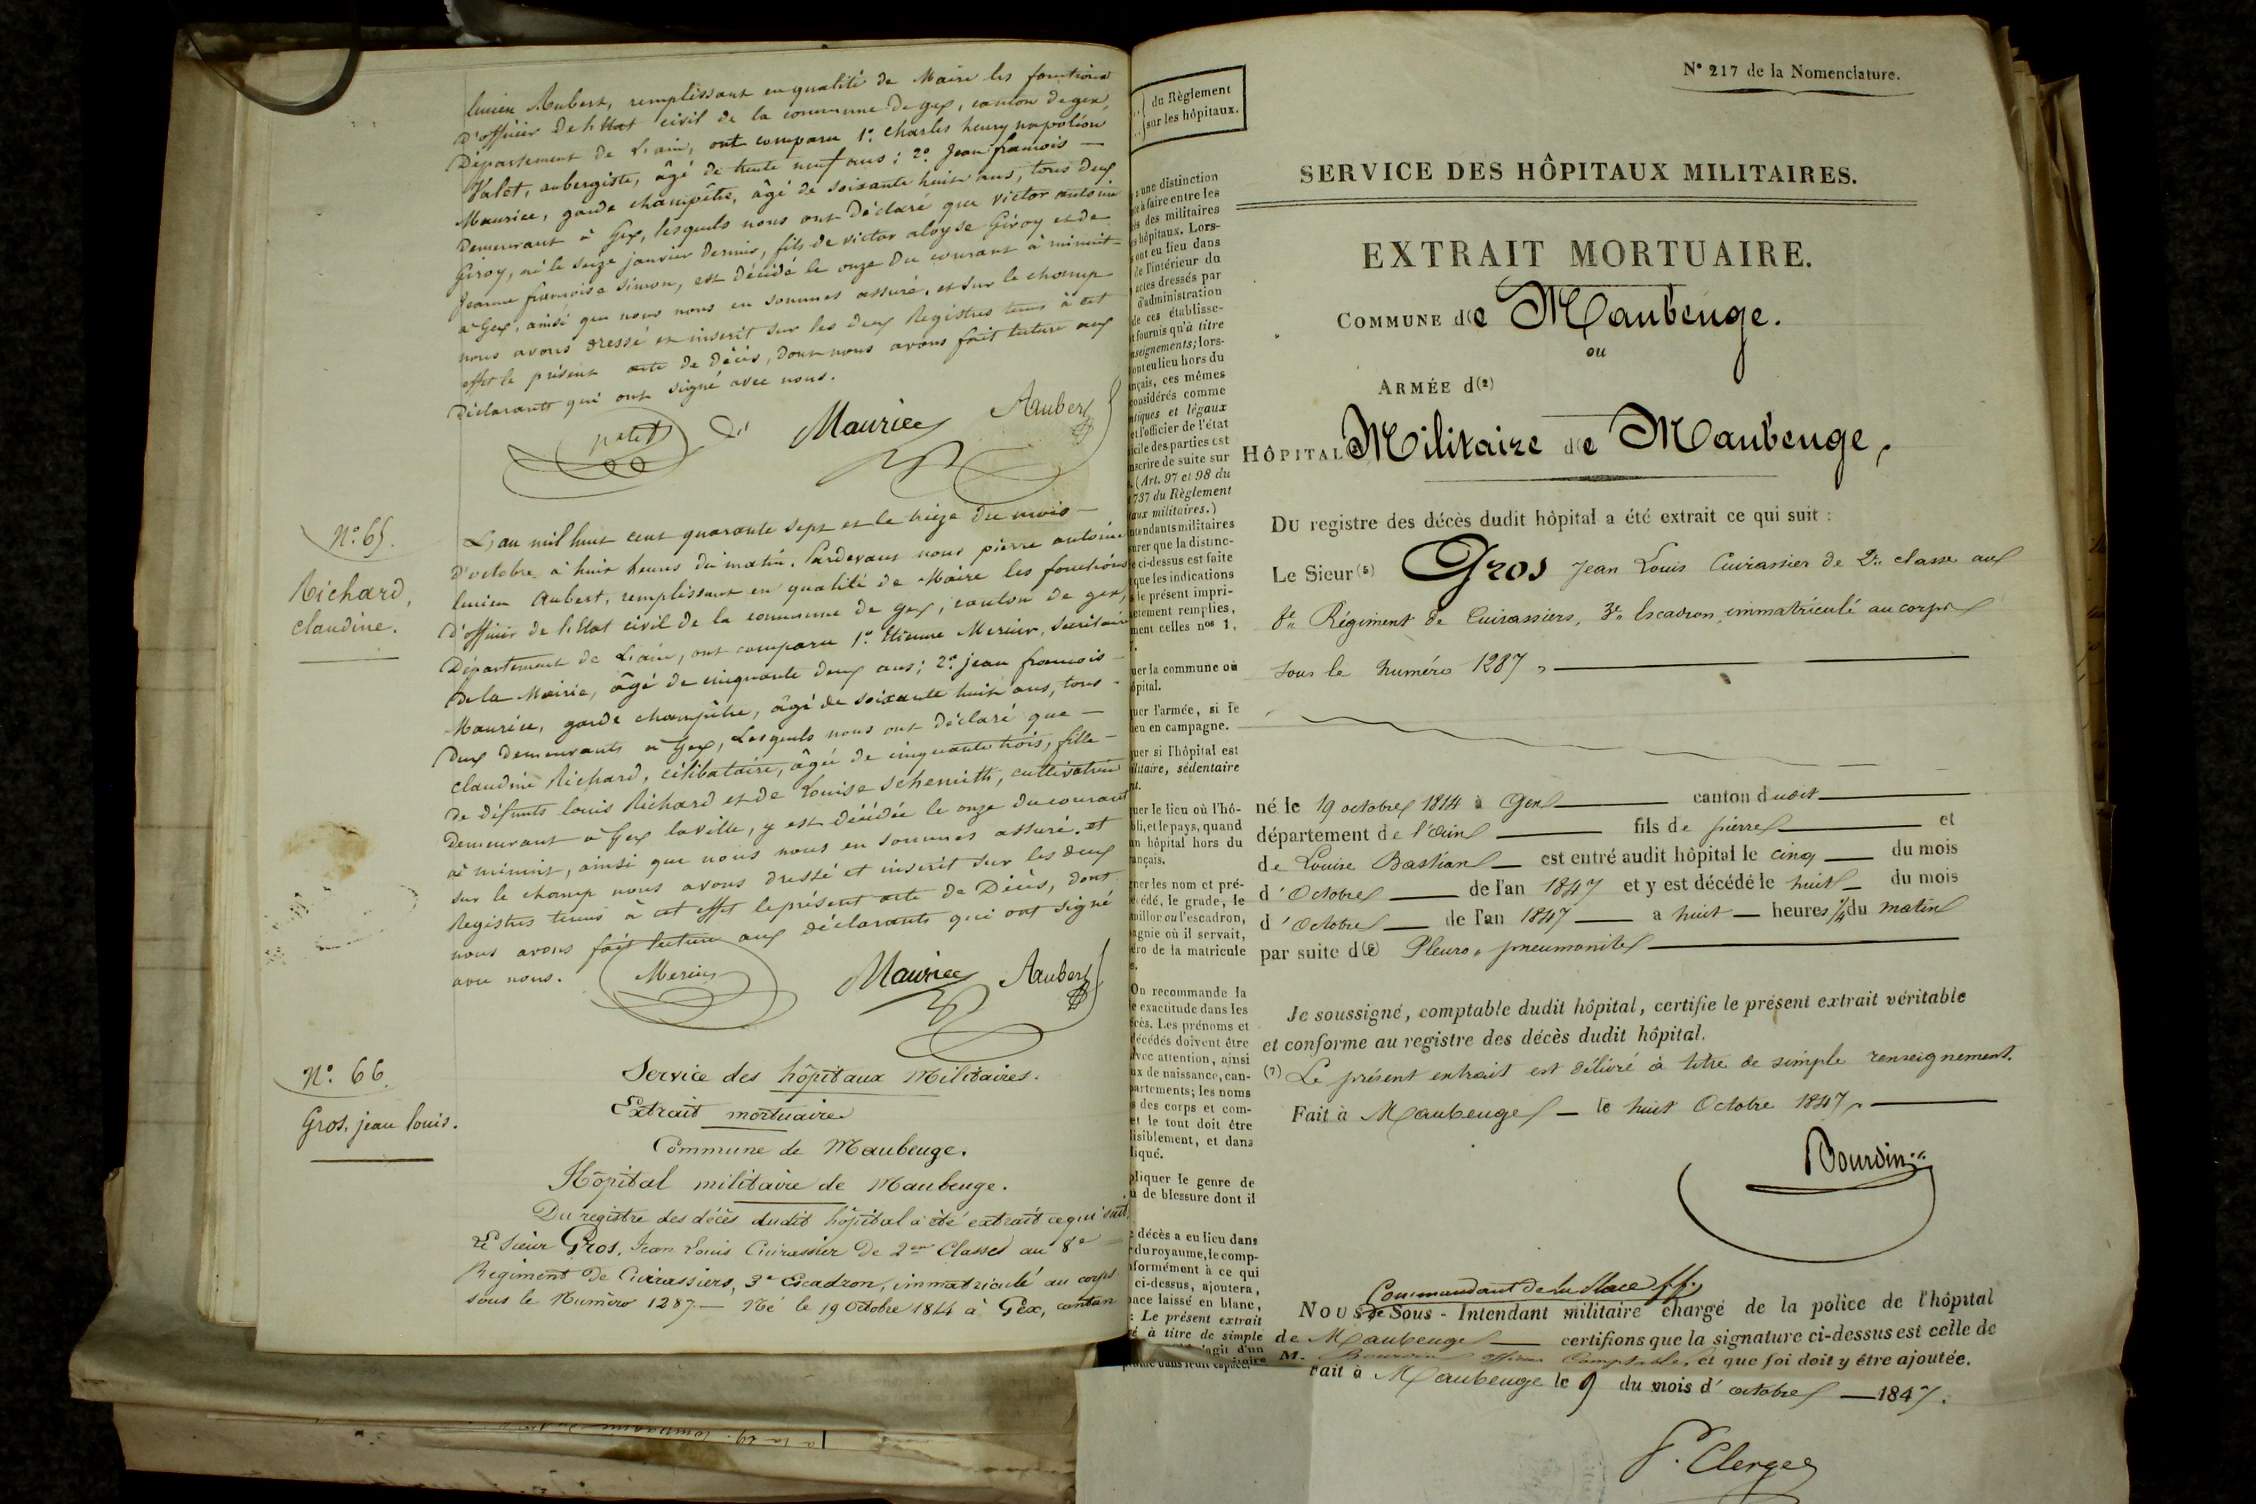 lucien Aubert, remplissant en qualité de Maire les fonctions
d'officier de l'Etat civil de la commune de gex, canton de gex,
Département de L'ain, ont comparu 1.° Charles henry napoléon
Valet, aubergiste, âgé de trente neuf ans; 2.° Jean francois —
Maurice, garde champêtre, âgé de soixante huit ans, tous deux
demeurant à Gex, lesquels nous ont déclaré que victor antoine
Giroy, né le seize janvier dernier, fils de victor aloyse Giroy et de
Jeanne francoise Simon, est décédé le onze du courant à minuit
à Gex, ainsi que nous nous en sommes assuré, et sur le champ
nous avons dressé et inscrit sur les deux Registres tenus à cet
effet le présent acte de décès, dont nous avons fait lecture aux
Déclarants qui ont signé avec nous.
Maurice Aubert
N.° 65.
Richard,
claudine.
L'an mil huit cent quarante sept et le treize du mois —
d'octobre à huit heures du matin. Pardevant nous pierre antoine
lucien Aubert, remplissant en qualité de Maire les fonctions
d'officier de l'Etat civil de la commune de gex, canton de gex,
Département de L'ain, ont comparu 1.° Etienne Mercier, secrétaire
de la Mairie, âgé de cinquante deux ans; 2.° jean francois —
Maurice, garde champêtre, âgé de soixante huit ans, tous —
deux demeurants à Gex, Lesquels nous ont déclaré que —
claudine Richard, célibataire, âgée de cinquante trois, fille —
de défunts louis Richard et de Louise Schemith, cultivatrice
demeurant à Gex la ville, y est décédée le onze du courant
à minuit, ainsi que nous nous en sommes assuré. et
sur le champ nous avons dressé et inscrit sur les deux
Registres tenus à cet effet le présent acte de Décès, dont
nous avons fait lecture aux déclarants qui ont signé
avec nous.
Mercier Maurice Aubert
N.° 66.
Gros, jean louis.
Service des hôpitaux Militaires.
Extrait mortuaire
Commune de Maubeuge.
Hôpital militaire de Maubeuge.
Du registre des décès dudit hôpital a été extrait ce qui suit.
Le Sieur Gros, Jean Louis Cuirassier de 2me Classe au 8e
Régiment de Cuirassiers, 3e Escadron, immatriculé au corps
sous le Numéro 1287. — Né le 19 Octobre 1814 à Gex, canton
du Règlement
sur les hôpitaux.
une distinction
à faire entre les
des militaires
hôpitaux. Lors-
ont eu lieu dans
de l'intérieur du
actes dressés par
d'administration
de ces établisse-
fournis qu'à titre
nseignements; lors-
ont eu lieu hors du
nçais, ces mêmes
considérés comme
ntiques et légaux
et l'officier de l'état
icile des parties est
nscrire de suite sur
(Art. 97 et 98 du
737 du Règlement
aux militaires.)
ntendants militaires
urer que la distinc-
ci-dessus est faite
que les indications
le présent impri-
ctement remplies,
ment celles nos 1,
uer la commune où
ôpital.
uer l'armée, si le
lieu en campagne.
quer si l'hôpital est
ilitaire, sédentaire
uer le lieu où l'hô-
bli, et le pays, quand
un hôpital hors du
ançais.
gner les nom et pré-
écédé, le grade, le
taillon ou l'escadron,
agnie où il servait,
éro de la matricule
On recommande la
exactitude dans les
cès. Les prénoms et
décédés doivent être
avec attention, ainsi
ux de naissance, can-
partements; les noms
des corps et com-
et le tout doit être
lisiblement, et dans
iqué.
pliquer le genre de
u de blessure dont il
décès a eu lieu dans
du royaume, le comp-
nformément à ce qui
ci-dessus, ajoutera,
pace laissé en blanc,
: Le présent extrait
à titre de simple
s'agit d'un
N° 217 de la Nomenclature.
SERVICE DES HÔPITAUX MILITAIRES.
EXTRAIT MORTUAIRE.
COMMUNE d(e Maubeuge.
ou
ARMÉE d(2)
HÔPITAL Militaire d(e Maubeuge,
DU registre des décès dudit hôpital a été extrait ce qui suit :
Le Sieur (5) Gros Jean Louis Cuirassier de 2e classe aux
8e Régiment de Cuirassiers, 3e Escadron, immatriculé au corps
sous le numéro 1287, —
né le 19 octobre 1814 à Gex — canton dudit —
département de l'ain — fils de pierre — et
de Louise Bastian — est entré audit hôpital le cinq — du mois
d'Octobre — de l'an 1847 et y est décédé le huit — du mois
d'Octobre — de l'an 1847 — a huit — heures 1/4 du matin
par suite d(e Pleuro-pneumonite —
Je soussigné, comptable dudit hôpital, certifie le présent extrait véritable
et conforme au registre des décès dudit hôpital.
(7) Le présent extrait est délivré à titre de simple renseignement.
Fait à Maubeuge — le huit Octobre 1847, —
Bourdin
Commandant de la Place f.f.
NOUS de Sous-Intendant militaire chargé de la police de l'hôpital
de Maubeuge — certifions que la signature ci-dessus est celle de
M. Bourdin officier Comptable, et que foi doit y être ajoutée.
Fait à Maubeuge le 9 du mois d'octobre — 1847.